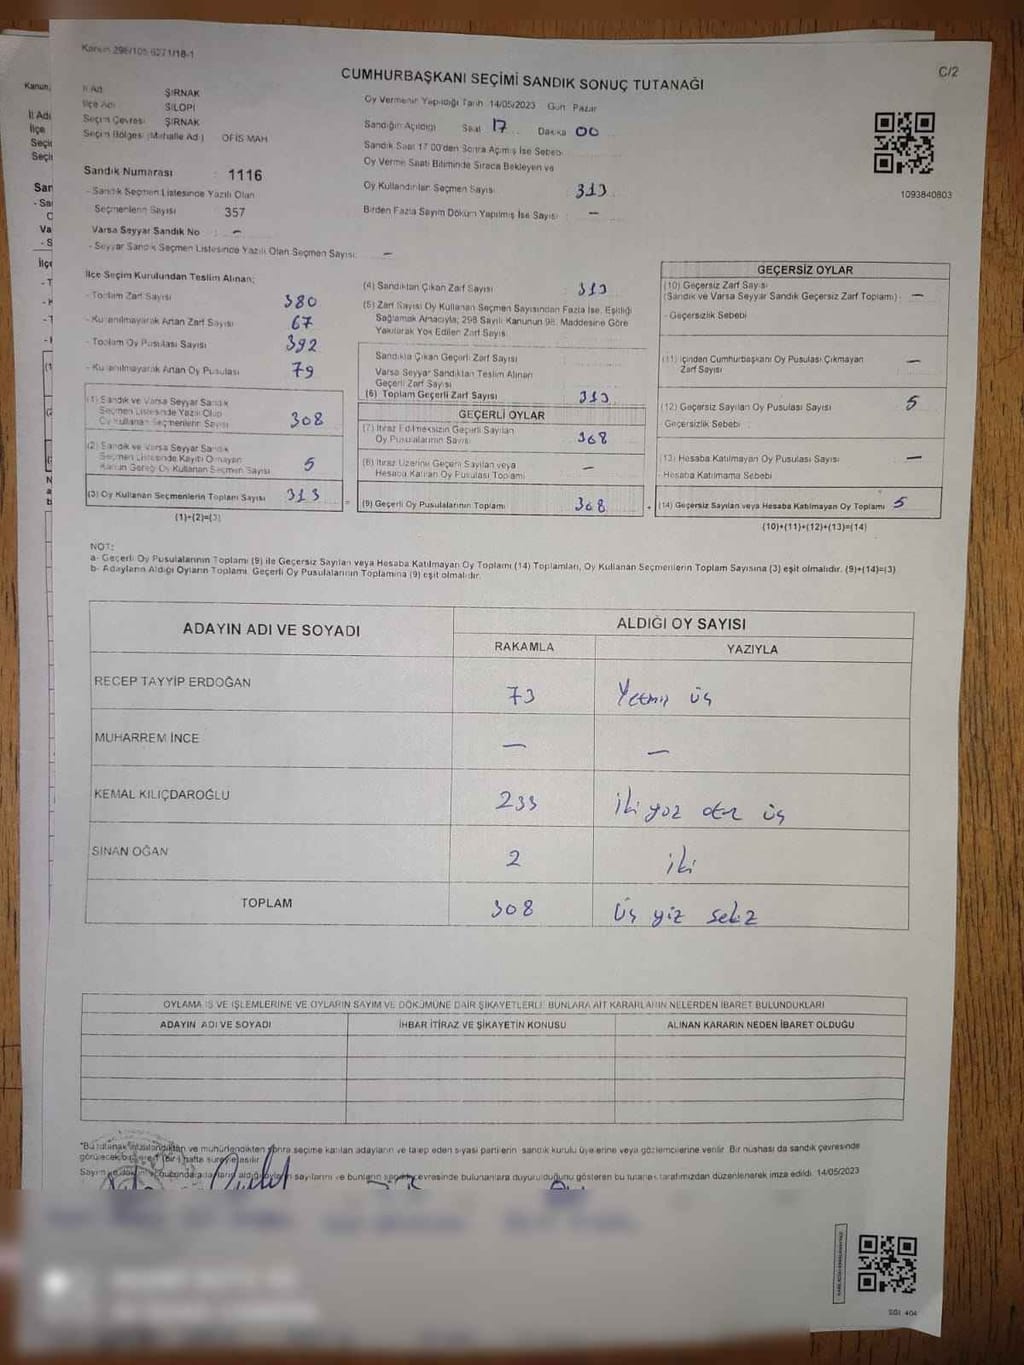 Kanun 298/105 6271/18-1
C/2
CUMHURBAŞKANI SEÇİMİ SANDIK SONUÇ TUTANAĞI
İl Adı ŞIRNAK
İlçe Adı SİLOPİ
Seçim Çevresi ŞIRNAK
Seçim Bölgesi (Mahalle Adı) OFİS MAH
Sandık Numarası : 1116
- Sandık Seçmen Listesinde Yazılı Olan
Seçmenlerin Sayısı 357
Varsa Seyyar Sandık No : –
- Seyyar Sandık Seçmen Listesinde Yazılı Olan Seçmen Sayısı: –
Oy Vermenin Yapıldığı Tarih 14/05/2023 Gün Pazar
Sandığın Açıldığı Saat 17 Dakika 00
Sandık Saat 17:00'den Sonra Açılmış İse Sebebi
Oy Verme Saati Bitiminde Sıraca Bekleyen ve
Oy Kullandırılan Seçmen Sayısı : 313
Birden Fazla Sayım Döküm Yapılmış İse Sayısı : –
1093840803
İlçe Seçim Kurulundan Teslim Alınan;
- Toplam Zarf Sayısı : 380
- Kullanılmayarak Artan Zarf Sayısı : 67
- Toplam Oy Pusulası Sayısı : 392
- Kullanılmayarak Artan Oy Pusulası : 79
(1) Sandık ve Varsa Seyyar Sandık
Seçmen Listesinde Yazılı Olup
Oy Kullanan Seçmenlerin Sayısı : 308
(2) Sandık ve Varsa Seyyar Sandık
Seçmen Listesinde Kayıtlı Olmayan
Kanun Gereği Oy Kullanan Seçmen Sayısı : 5
(3) Oy Kullanan Seçmenlerin Toplam Sayısı : 313
(1)+(2)=(3)
(4) Sandıktan Çıkan Zarf Sayısı : 313
(5) Zarf Sayısı Oy Kullanan Seçmen Sayısından Fazla İse, Eşitliği
Sağlamak Amacıyla; 298 Sayılı Kanunun 98. Maddesine Göre
Yakılarak Yok Edilen Zarf Sayısı
Sandıkta Çıkan Geçerli Zarf Sayısı :
Varsa Seyyar Sandıktan Teslim Alınan
Geçerli Zarf Sayısı :
(6) Toplam Geçerli Zarf Sayısı : 313
GEÇERLİ OYLAR
(7) İtiraz Edilmeksizin Geçerli Sayılan
Oy Pusulalarının Sayısı : 308
(8) İtiraz Üzerine Geçerli Sayılan veya
Hesaba Katılan Oy Pusulası Toplamı : –
(9) Geçerli Oy Pusulalarının Toplamı : 308
GEÇERSİZ OYLAR
(10) Geçersiz Zarf Sayısı
(Sandık ve Varsa Seyyar Sandık Geçersiz Zarf Toplamı) : –
- Geçersizlik Sebebi
(11) İçinden Cumhurbaşkanı Oy Pusulası Çıkmayan
Zarf Sayısı : –
(12) Geçersiz Sayılan Oy Pusulası Sayısı : 5
Geçersizlik Sebebi
(13) Hesaba Katılmayan Oy Pusulası Sayısı : –
- Hesaba Katılmama Sebebi
(14) Geçersiz Sayılan veya Hesaba Katılmayan Oy Toplamı : 5
(10)+(11)+(12)+(13)=(14)
NOT:
a- Geçerli Oy Pusulalarının Toplamı (9) ile Geçersiz Sayılan veya Hesaba Katılmayan Oy Toplamı (14) Toplamları, Oy Kullanan Seçmenlerin Toplam Sayısına (3) eşit olmalıdır. (9)+(14)=(3)
b- Adayların Aldığı Oyların Toplamı, Geçerli Oy Pusulalarının Toplamına (9) eşit olmalıdır.
ADAYIN ADI VE SOYADI
ALDIĞI OY SAYISI
RAKAMLA YAZIYLA
RECEP TAYYİP ERDOĞAN 73 Yetmiş üç
MUHARREM İNCE – –
KEMAL KILIÇDAROĞLU 233 iki yüz otuz üç
SİNAN OĞAN 2 iki
TOPLAM 308 üç yüz sekiz
OYLAMA İŞ VE İŞLEMLERİNE VE OYLARIN SAYIM VE DÖKÜMÜNE DAİR ŞİKAYETLERLE BUNLARA AİT KARARLARIN NELERDEN İBARET BULUNDUKLARI
ADAYIN ADI VE SOYADI İHBAR İTİRAZ VE ŞİKAYETİN KONUSU ALINAN KARARIN NEDEN İBARET OLDUĞU
*Bu tutanak imzalandıktan ve mühürlendikten sonra seçime katılan adayların ve talep eden siyasi partilerin sandık kurulu üyelerine veya gözlemcilerine verilir. Bir nüshası da sandık çevresinde
görülecek bir yere (bir) hafta süreyle asılır.
sayılarını ve bunların sandık çevresinde bulunanlara duyurulduğunu gösteren bu tutanak tarafımızdan düzenlenerek imza edildi. 14/05/2023